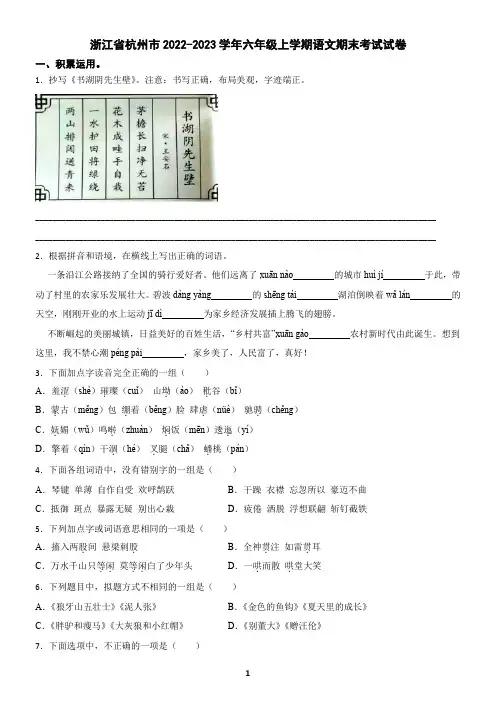 浙江省杭州市2022-2023学年六年级上学期语文期末考试试卷
一、积累运用。
1．抄写《书湖阴先生壁》。注意：书写正确，布局美观，字迹端正。
书湖阴先生壁
宋·王安石
茅檐长扫净无苔
花木成畦手自栽
一水护田将绿绕
两山排闼送青来
2．根据拼音和语境，在横线上写出正确的词语。
一条沿江公路接纳了全国的骑行爱好者。他们远离了 xuān nào 的城市 huì jí 于此，带
动了村里的农家乐发展壮大。碧波 dàng yàng 的 shēng tài 湖泊倒映着 wǎ lán 的
天空，刚刚开业的水上运动 jī dì 为家乡经济发展插上腾飞的翅膀。
不断崛起的美丽城镇，日益美好的百姓生活，“乡村共富”xuān gào 农村新时代由此诞生。想到
这里，我不禁心潮 péng pài ，家乡美了，人民富了，真好！
3．下面加点字读音完全正确的一组（ ）
A．羞涩（shè）璀璨（cuǐ） 山坳（ào） 秕谷（bǐ）
B．蒙古（měng）包 绷着（běng）脸 肆虐（nüè） 驰骋（chěng）
C．妩媚（wǔ）鸣啭（zhuàn） 焖饭（mēn）逶迤（yí）
D．擎着（qín）干涸（hé） 叉腿（chǎ） 蟠桃（pán）
4．下面各组词语中，没有错别字的一组是（ ）
A．琴键 单薄 自作自受 欢呼鹊跃 B．干躁 衣襟 忘忽所以 豪迈不曲
C．抵御 斑点 暴露无疑 别出心裁 D．疲倦 洒脱 浮想联翩 斩钉截铁
5．下列加点字或词语意思相同的一项是（ ）
A．搐入两股间 悬梁刺股 B．全神贯注 如雷贯耳
C．万水千山只等闲 莫等闲白了少年头 D．一哄而散 哄堂大笑
6．下列题目中，拟题方式不相同的一组是（ ）
A．《狼牙山五壮士》《泥人张》 B．《金色的鱼钩》《夏天里的成长》
C．《胖驴和瘦马》《大灰狼和小红帽》 D．《别董大》《赠汪伦》
7．下面选项中，不正确的一项是（ ）
1